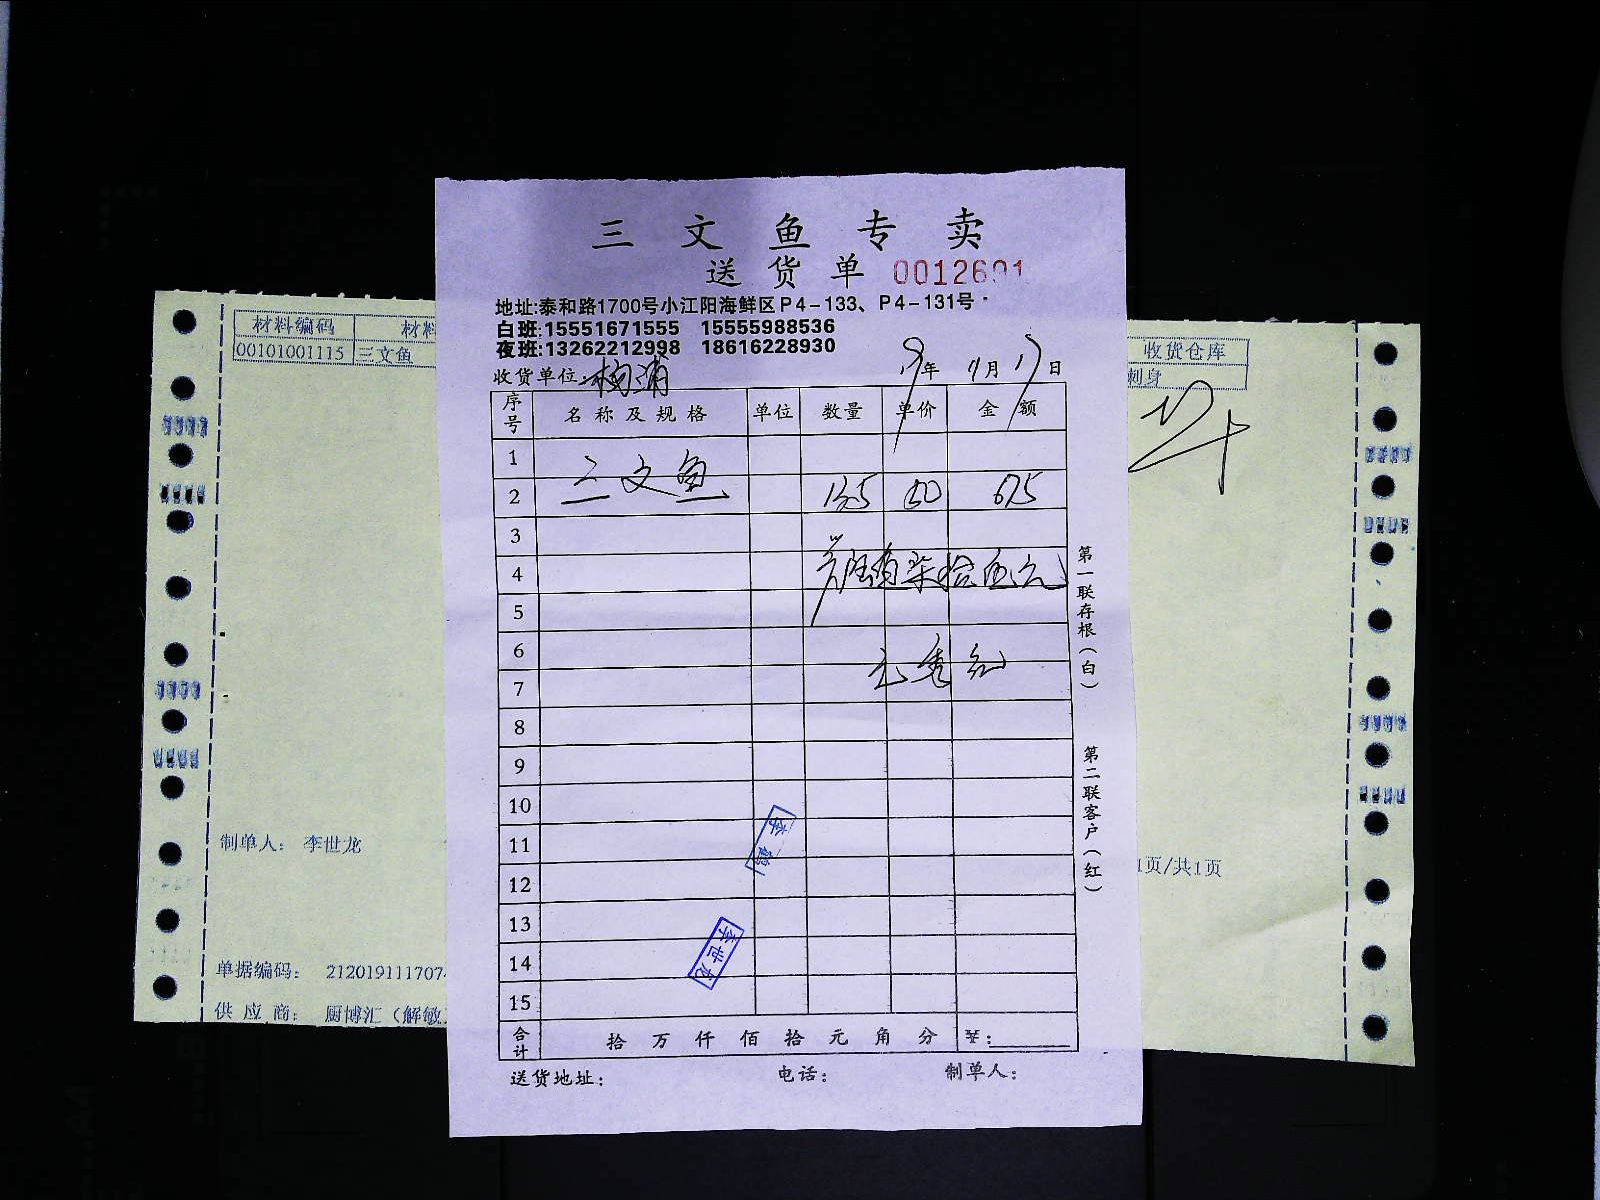 三文鱼专卖
送货单 0012691
地址:泰和路1700号小江阳海鲜区P4-133、P4-131号
白班:15551671555 15555988536
夜班:13262212998 18616228930
收货单位:杨浦 19年11月17日
序号 名称及规格 单位 数量 单价 金额
1
2 三文鱼 13.5 50 675
3
4 陆佰柒拾伍元
5
6
7
8
9
10
11
12
13
14
15
李鹤
李世龙
合计 拾万仟佰拾元角分 ¥:
送货地址: 电话: 制单人:
第一联存根(白)
第二联客户(红)
材料编码 材料
00101001115 三文鱼
制单人: 李世龙
单据编码: 212019111707
供应商: 厨博汇(解敏
收货仓库
刺身
1页/共1页